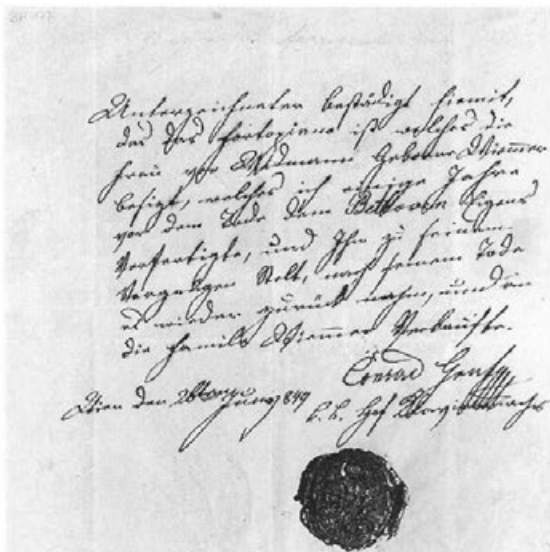 Unterzeichneter bestädigt hiemit,
das das Fortopiano ist welches die
Frau von Widmann Geborne Wimmer
besizt, welches ich einige Jahre
vor dem Tode dem Bethoven Eigens
Verfertigte, und Ihm zu seinem
Vergnügen Stelt, nach seinem Tode
es wieder zurück nahm, und an
die Familie Wimmer Verkaufte.
Conrad Graf
Wien den Juny 849
k. k. Hof Klaviermacher